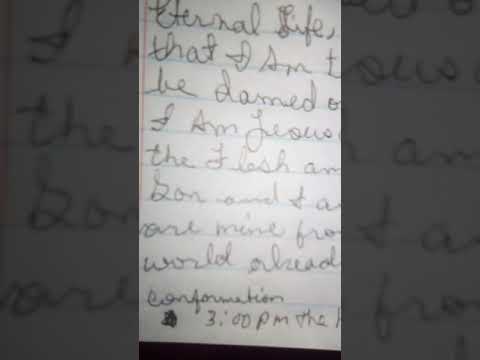 Eternal Life,
that I Am t
be damed o
I Am Jesus
the Flesh am
Son and I a
are mine fro
world alread
conformation
3:00 pm the